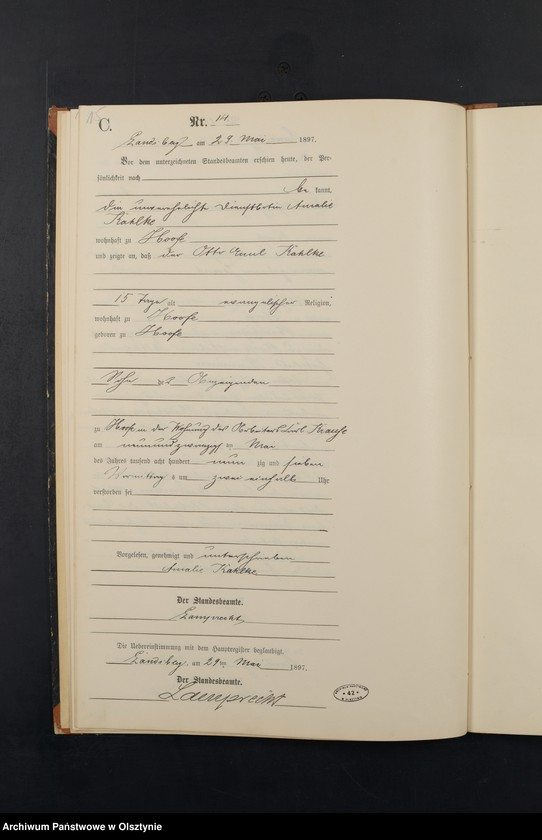 C.
Nr. 14
Landsberg am 29 Mai 1897.
Vor dem unterzeichneten Standesbeamten erschien heute, der Per-
sönlichkeit nach
be kannt,
die unverehelichte Dienstbotin Amalie
Kahlke
wohnhaft zu Hoofe
und zeigte an, daß der Otto Emil Kahlke
15 Tage alt evangelischer Religion,
wohnhaft zu Hoofe
geboren zu Hoofe
Sohn der Anzeigenden
zu Hoofe in der Wohnung des Arbeiters Karl Krause
am neunundzwanzigsten Mai
des Jahres tausend acht hundert neun zig und sieben
Vormittags um zwei einhalb Uhr
verstorben sei
Vorgelesen, genehmigt und unterschrieben
Amalie Kahlke
Der Standesbeamte.
Lamprecht
Die Uebereinstimmung mit dem Hauptregister beglaubigt.
Landsberg am 29ten Mai 1897.
Der Standesbeamte.
Lamprecht
42
Archiwum Państwowe w Olsztynie